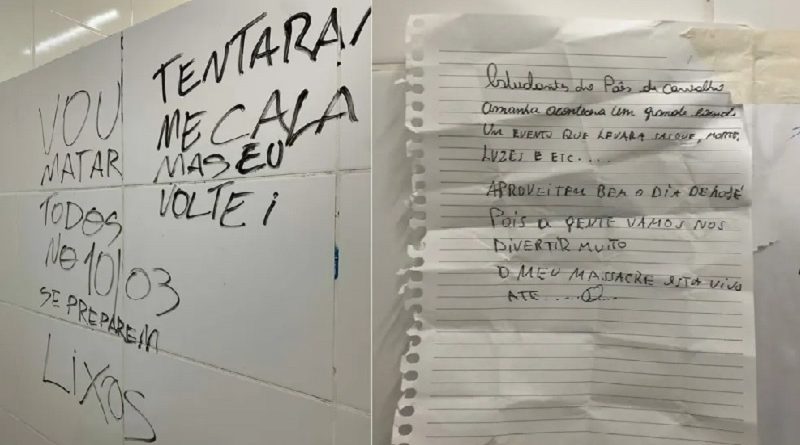 VOU
MATAR
TODOS
NO 10/03
SE PREPAREM
LIXOS
TENTARAM
ME CALA
MAS EU
VOLTEI
Estudantes do Pais de Carvalho
amanha acontecera um grande
UM EVENTO QUE LEVARA SANGUE, MORTE,
LUZES E ETC....
APROVEITEM BEM O DIA DE HOJE
POIS A GENTE VAMOS NOS
DIVERTIR MUITO
O MEU MASSACRE ESTA VIVO
ATE